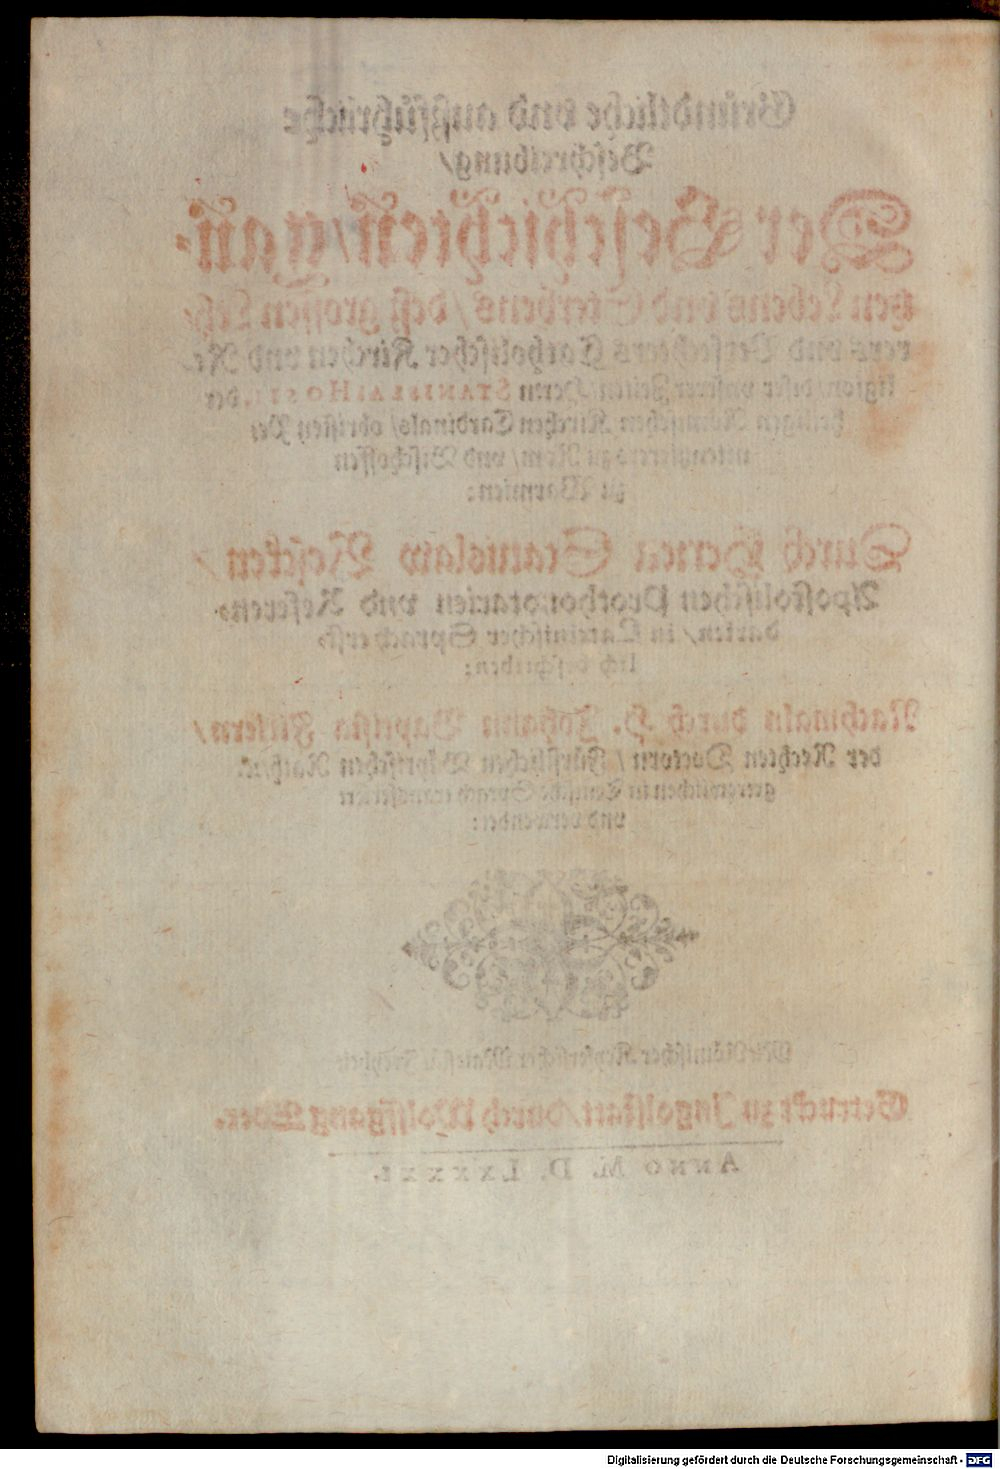 Gründtliche vnd außführliche
Beschreibung/
Der Geschichten/ gan-
tzen Lebens vnd Sterbens/ deß grossen Leh-
rers vnd Verfechters Catholischer Kirchen vnd Re-
ligion/ diser vnserer Zeiten/ Herrn STANISLAI HOSII, der
heiligen Römischen Kirchen Cardinals/ obristen
zu Rom/ vnd Bischoffen
zu Warmien:
Durch Herren Stanislaw Rescken/
Apostolischen Prothonotarien vnd Referen-
darien/ in Lateinischer Sprach erst-
lich beschriben:
Nachmaln durch H. Johann Baptista Ficklern/
der Rechten Doctorn/ Fürstlichen Rath/
in Teutsche Sprach transferiert
vnd verwendet:
Mit Römischer Keyserischer Maiestat Freyheit
Getruckt zu Ingolstatt/ durch Wolffgang Eder.
ANNO M. D. LXXXXI.
Digitalisierung gefördert durch die Deutsche Forschungsgemeinschaft - DFG